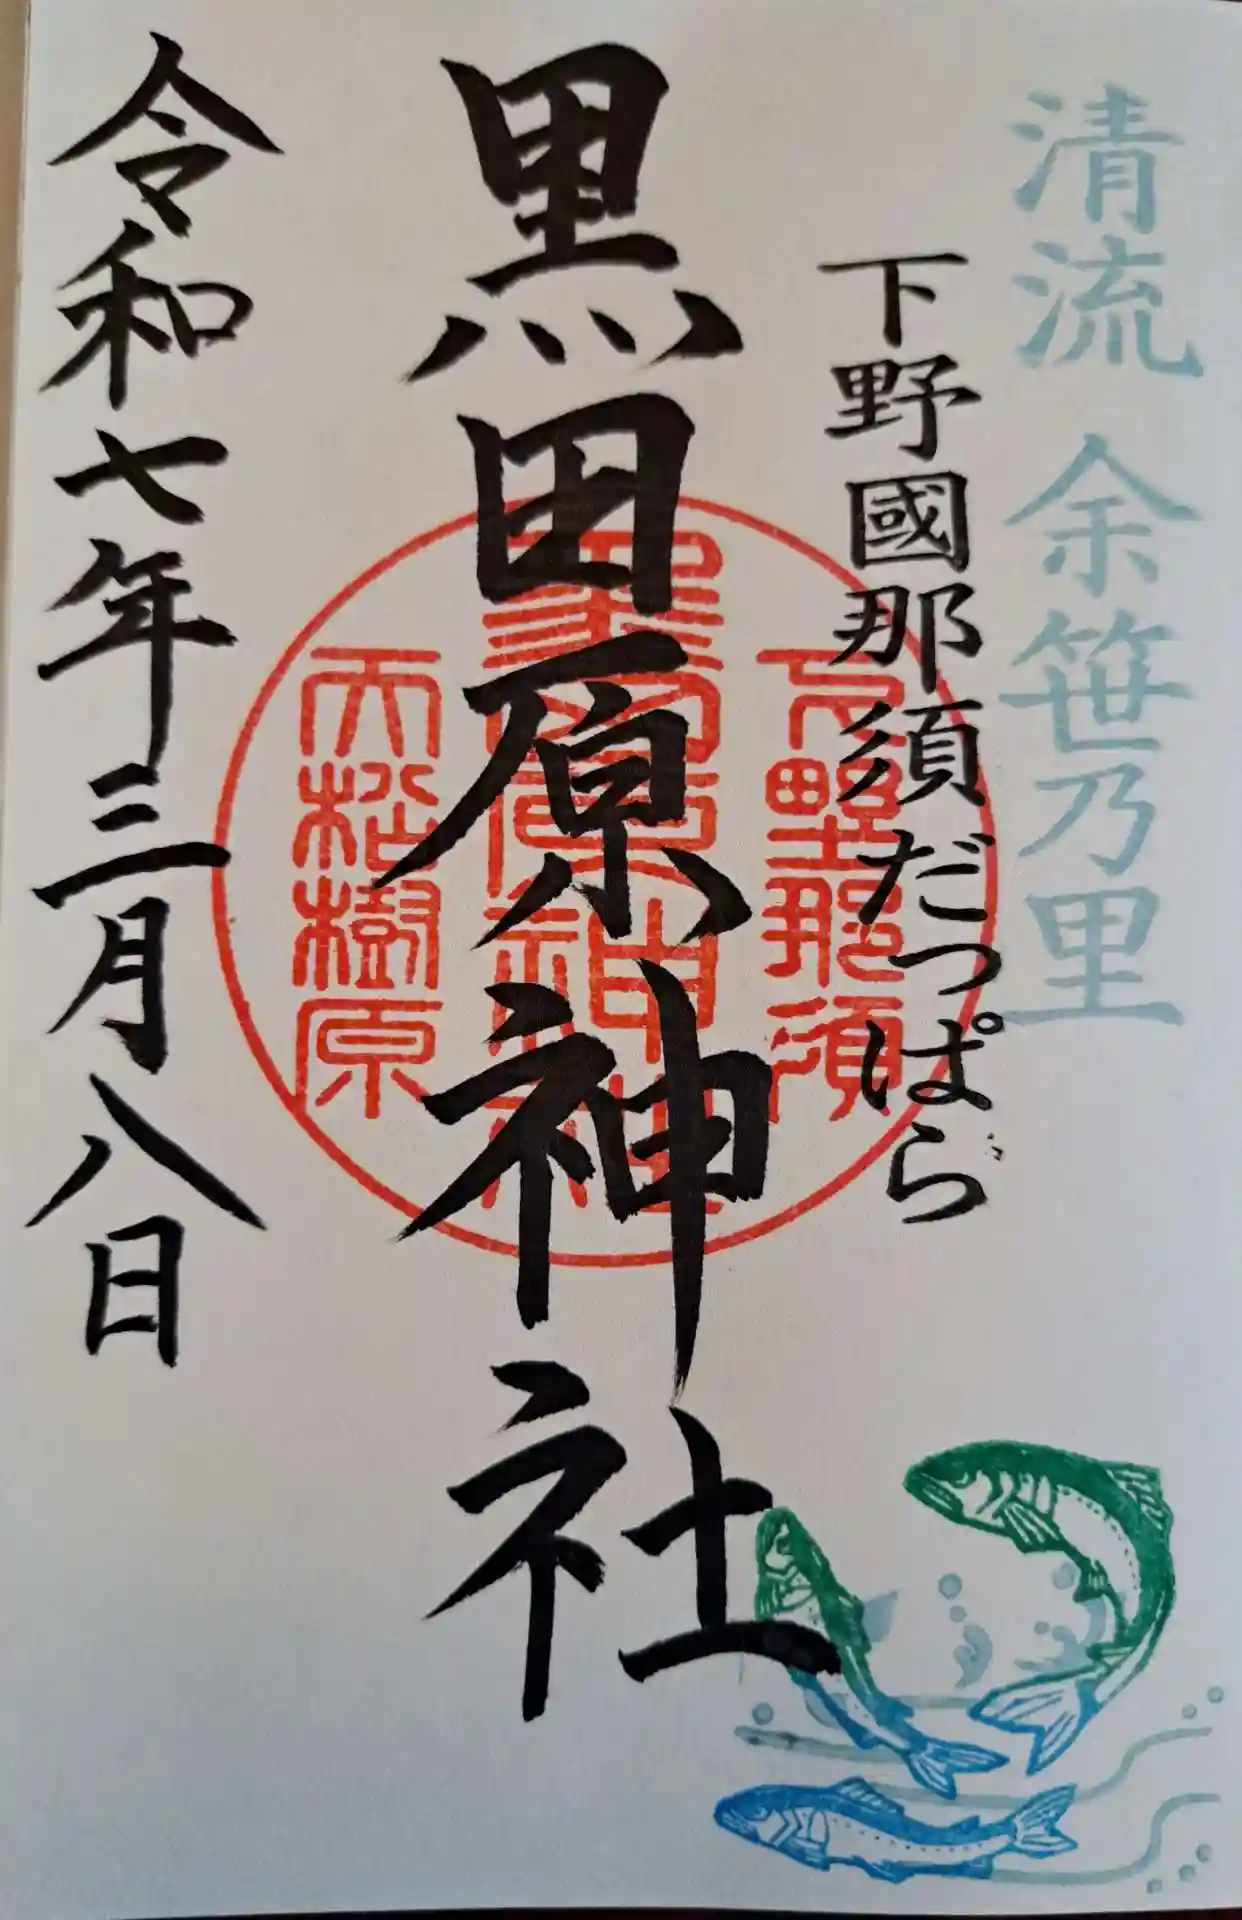 清流 余笹乃里
下野國那須だっぱら
黒田原神社
下野那須
黒田原神社
大松樹原
令和七年三月八日